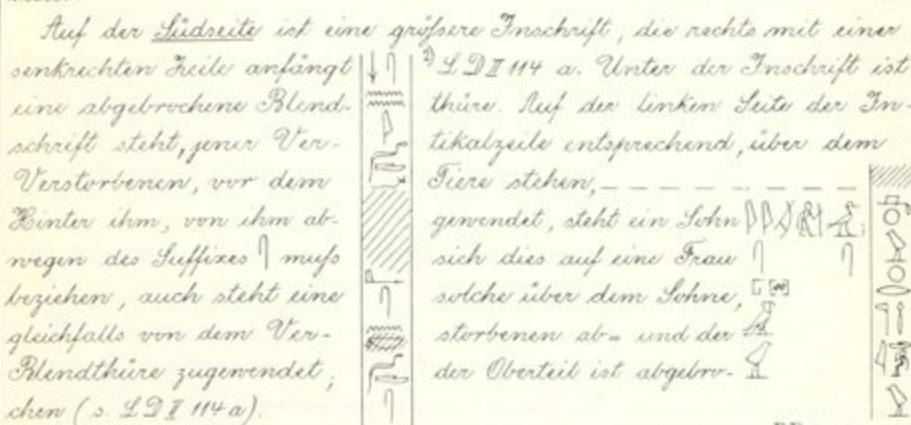 Auf der Südseite ist eine größere Inschrift, die rechts mit einer
senkrechten Zeile anfängt LD II 114 a. Unter der Inschrift ist
eine abgebrochene Blend- thüre. Auf der linken Seite der In-
schrift steht, jener Ver- tikalzeile entsprechend, über dem
Verstorbenen, vor dem Tiere stehen,
Hinter ihm, von ihm ab- gewendet, steht ein Sohn
wegen des Suffixes muß sich dies auf eine Frau
beziehen, auch steht eine solche über dem Sohne,
gleichfalls von dem Ver- storbenen ab- und der
Blendthüre zugewendet; der Oberteil ist abgebro-
chen (s. LD II 114 a).